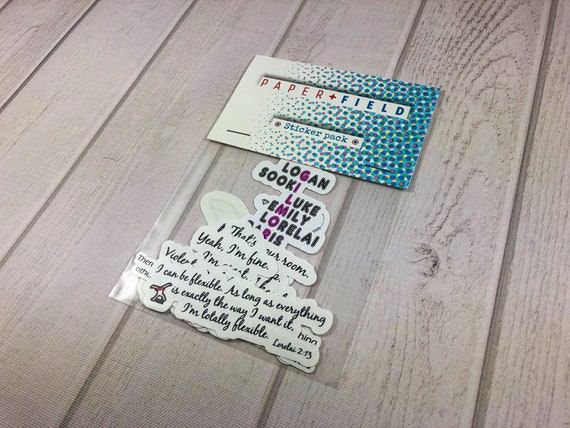 PAPER+FIELD
Sticker pack
LOGAN
SOOKI
LUKE
EMILY
LORELAI
That's our room.
Yeah, I'm fine.
I'm
Violet
Then
I can be flexible. As long as everything
is exactly the way I want it,
I'm totally flexible.
Lorelai 2:13